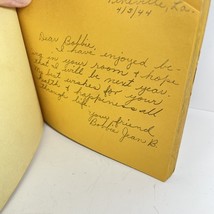 Pineville, La.
4/2/44
Dear Bobbie,
I have enjoyed be-
in your room & hope
that I will be next year.
best wishes for your
health & happiness all
through life.
Your friend
Bobbie Jean B.